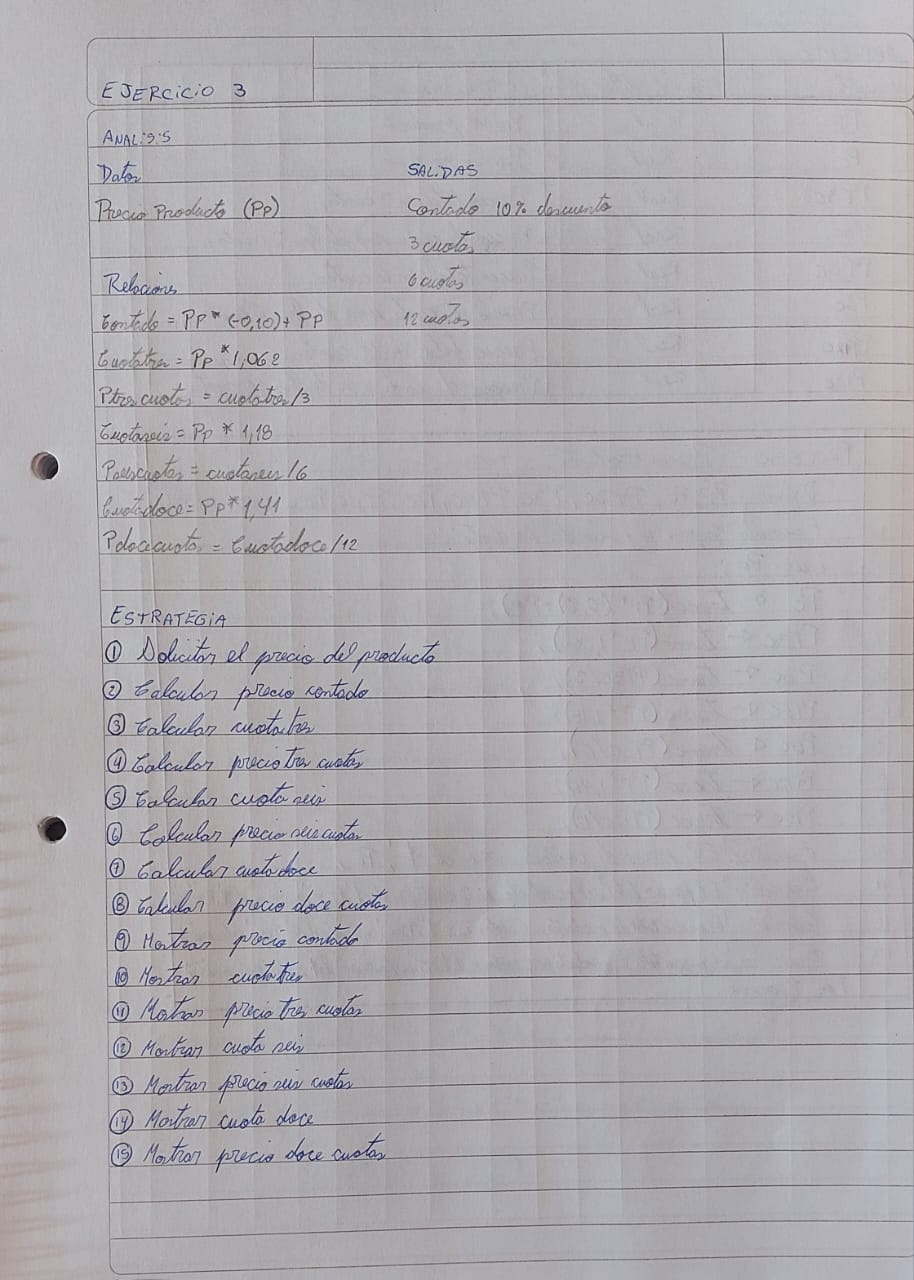 EJERCICIO 3
ANALISIS
Datos SALIDAS
Precio Producto (Pp) Contado 10% descuento
3 cuotas
Relaciones 6 cuotas
Contado = Pp * (-0,10) + Pp 12 cuotas
Cuotatres = Pp * 1,062
Ptres cuotas = cuotatres /3
Cuotaseis = Pp * 1,18
Pseiscuotas = cuotaseis /6
Cuotadoce = Pp * 1,41
Pdocecuota = Cuotadoce /12
ESTRATEGIA
① Solicitar el precio del producto
② Calcular precio contado
③ Calcular cuota tres
④ Calcular precio tres cuotas
⑤ Calcular cuota seis
⑥ Calcular precio seis cuotas
⑦ Calcular cuota doce
⑧ Calcular precio doce cuotas
⑨ Mostrar precio contado
⑩ Mostrar cuota tres
⑪ Mostrar precio tres cuotas
⑫ Mostrar cuota seis
⑬ Mostrar precio seis cuotas
⑭ Mostrar cuota doce
⑮ Mostrar precio doce cuotas